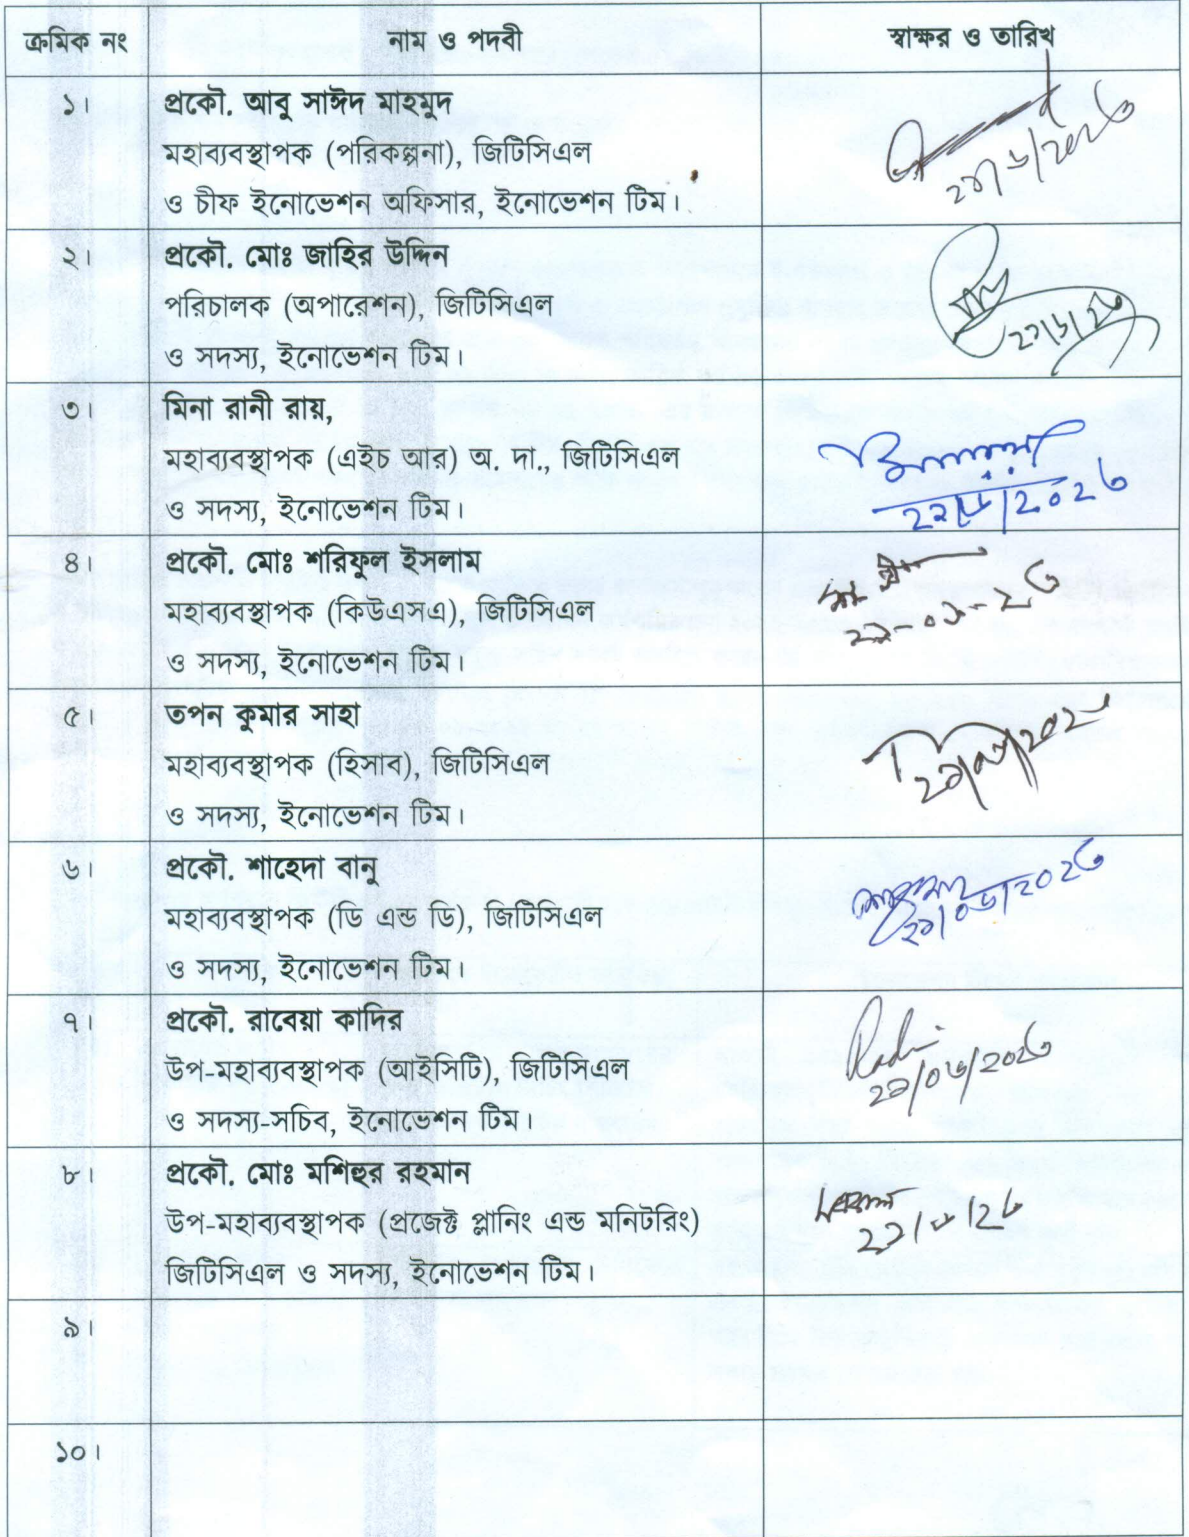 ক্রমিক নং	নাম ও পদবী	স্বাক্ষর ও তারিখ
১।	প্রকৌ. আবু সাঈদ মাহমুদ
মহাব্যবস্থাপক (পরিকল্পনা), জিটিসিএল
ও চীফ ইনোভেশন অফিসার, ইনোভেশন টিম।
২।	প্রকৌ. মোঃ জাহির উদ্দিন
পরিচালক (অপারেশন), জিটিসিএল
ও সদস্য, ইনোভেশন টিম।
৩।	মিনা রানী রায়,
মহাব্যবস্থাপক (এইচ আর) অ. দা., জিটিসিএল
ও সদস্য, ইনোভেশন টিম।
৪।	প্রকৌ. মোঃ শরিফুল ইসলাম
মহাব্যবস্থাপক (কিউএসএ), জিটিসিএল
ও সদস্য, ইনোভেশন টিম।
৫।	তপন কুমার সাহা
মহাব্যবস্থাপক (হিসাব), জিটিসিএল
ও সদস্য, ইনোভেশন টিম।
৬।	প্রকৌ. শাহেদা বানু
মহাব্যবস্থাপক (ডি এন্ড ডি), জিটিসিএল
ও সদস্য, ইনোভেশন টিম।
৭।	প্রকৌ. রাবেয়া কাদির
উপ-মহাব্যবস্থাপক (আইসিটি), জিটিসিএল
ও সদস্য-সচিব, ইনোভেশন টিম।
৮।	প্রকৌ. মোঃ মশিহুর রহমান
উপ-মহাব্যবস্থাপক (প্রজেক্ট প্লানিং এন্ড মনিটরিং)
জিটিসিএল ও সদস্য, ইনোভেশন টিম।
৯।
১০।